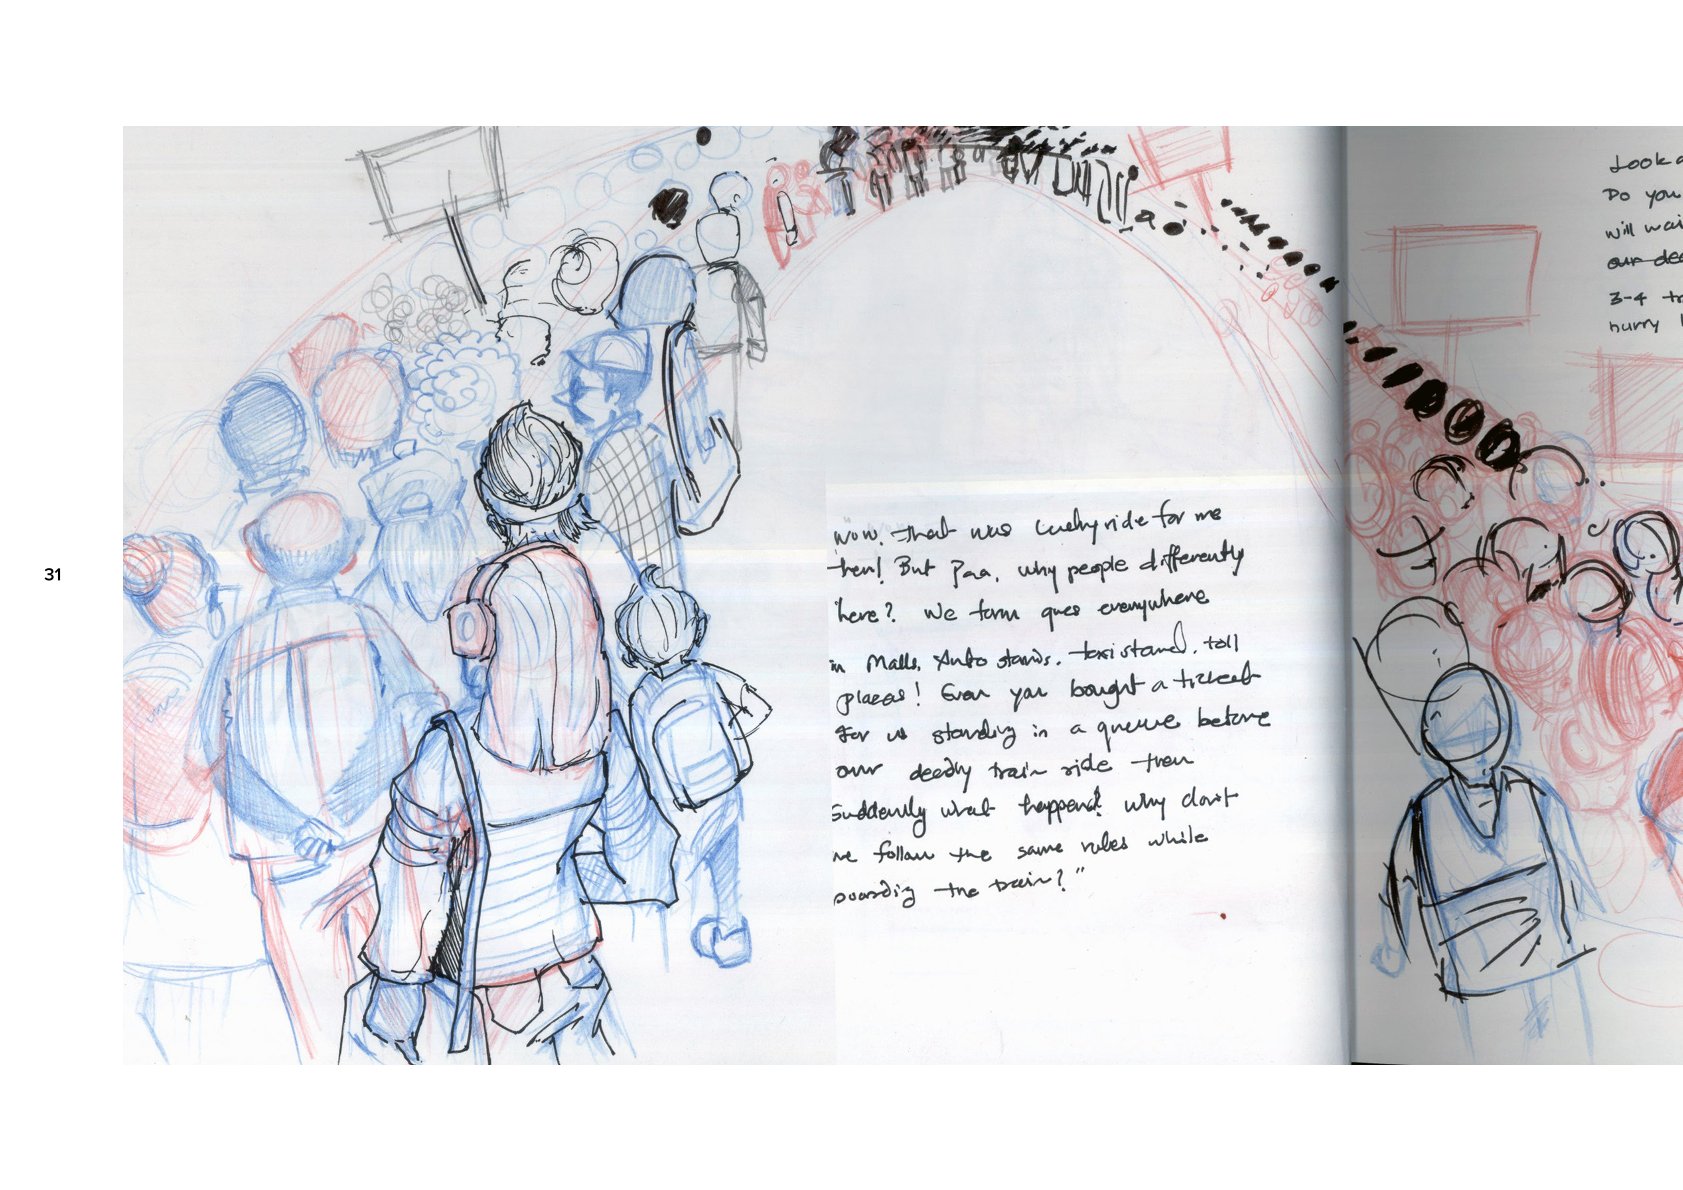 31
"Wow. that was lucky ride for me
then! But Paa, why people differently
here? We form ques everywhere
in Malls. Auto stands. taxi stand. toll
plazas! Even you bought a ticket
for us standing in a queue before
our deadly train ride then
Suddenly what happened? why don't
we follow the same rules while
boarding the train?"
Look a
Do you
will wai
our dee
3-4 tr
hurry